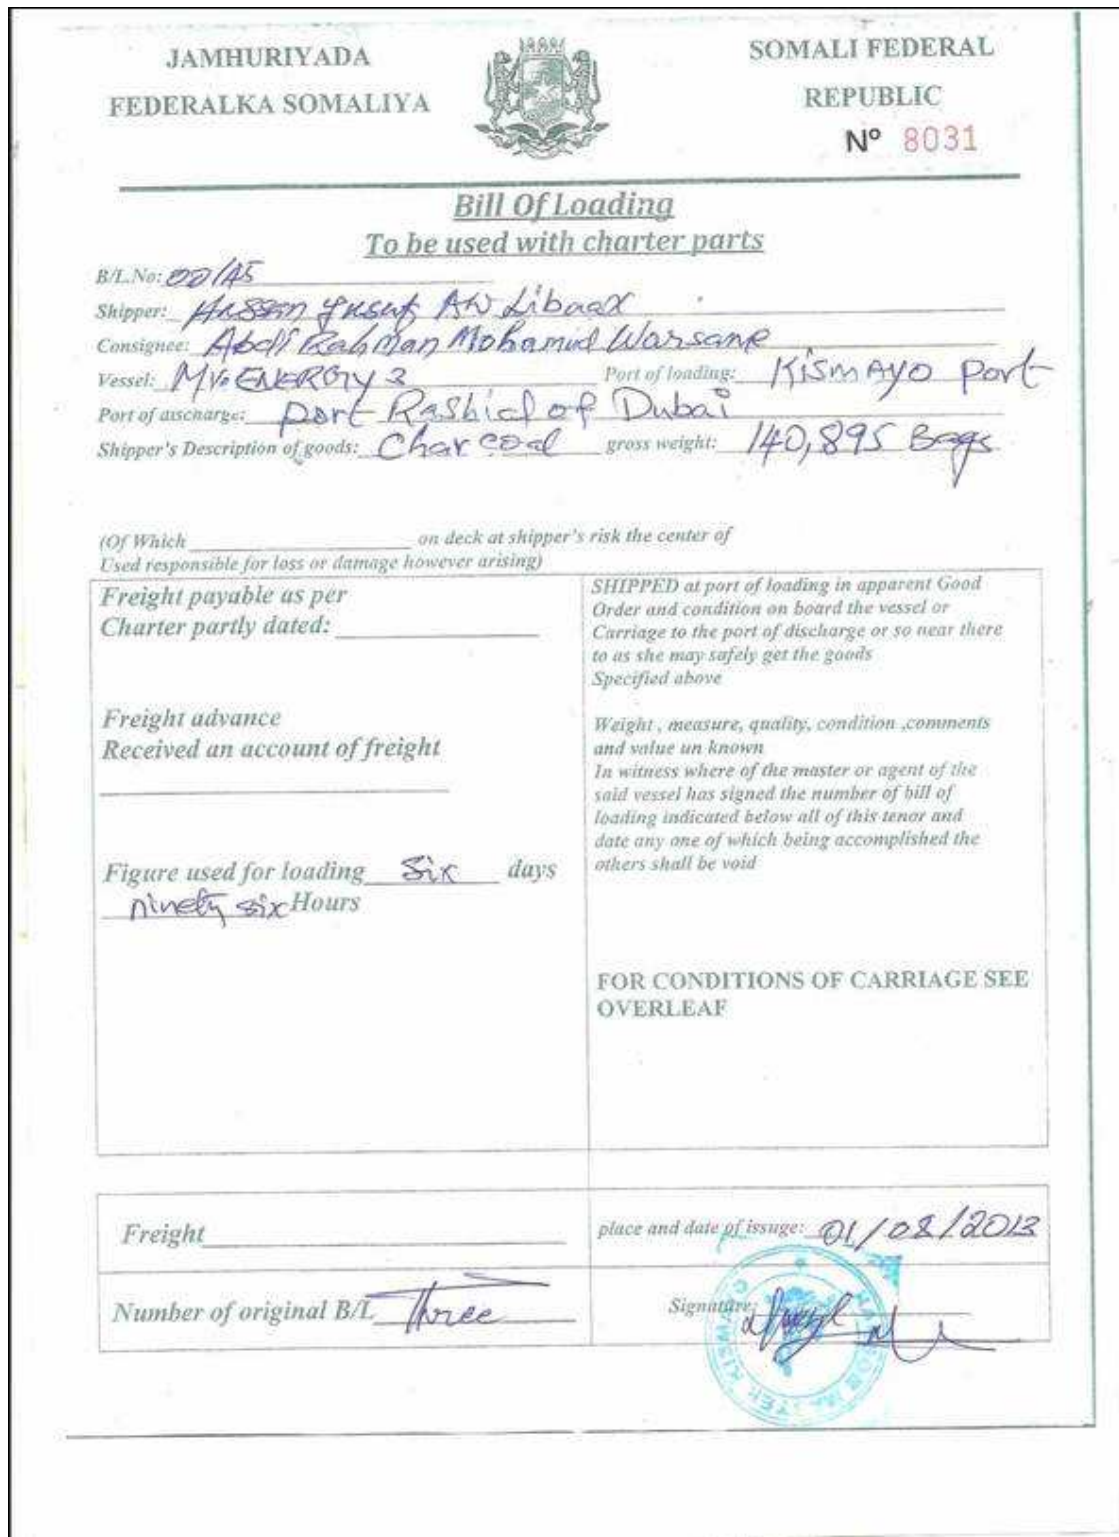 JAMHURIYADA
FEDERALKA SOMALIYA
SOMALI FEDERAL
REPUBLIC
Nº 8031
Bill Of Loading
To be used with charter parts
B/L.No: 00/A5
Shipper: Hassan Yusuf AW Libaax
Consignee: Abdi Rahman Mohamid Warsame
Vessel: MV. ENERGY 3 Port of loading: KISMAYO port
Port of discharge: port Rashid of Dubai
Shipper's Description of goods: Charcoal gross weight: 140,895 Bags
(Of Which ____ on deck at shipper's risk the center of
Used responsible for loss or damage however arising)
Freight payable as per
Charter partly dated:
Freight advance
Received an account of freight
Figure used for loading Six days
ninety six Hours
SHIPPED at port of loading in apparent Good
Order and condition on board the vessel or
Carriage to the port of discharge or so near there
to as she may safely get the goods
Specified above
Weight , measure, quality, condition ,comments
and value un known
In witness where of the master or agent of the
said vessel has signed the number of bill of
loading indicated below all of this tenor and
date any one of which being accomplished the
others shall be void
FOR CONDITIONS OF CARRIAGE SEE
OVERLEAF
Freight
place and date of issuge: 01/08/2013
Number of original B/L Three
Signature: